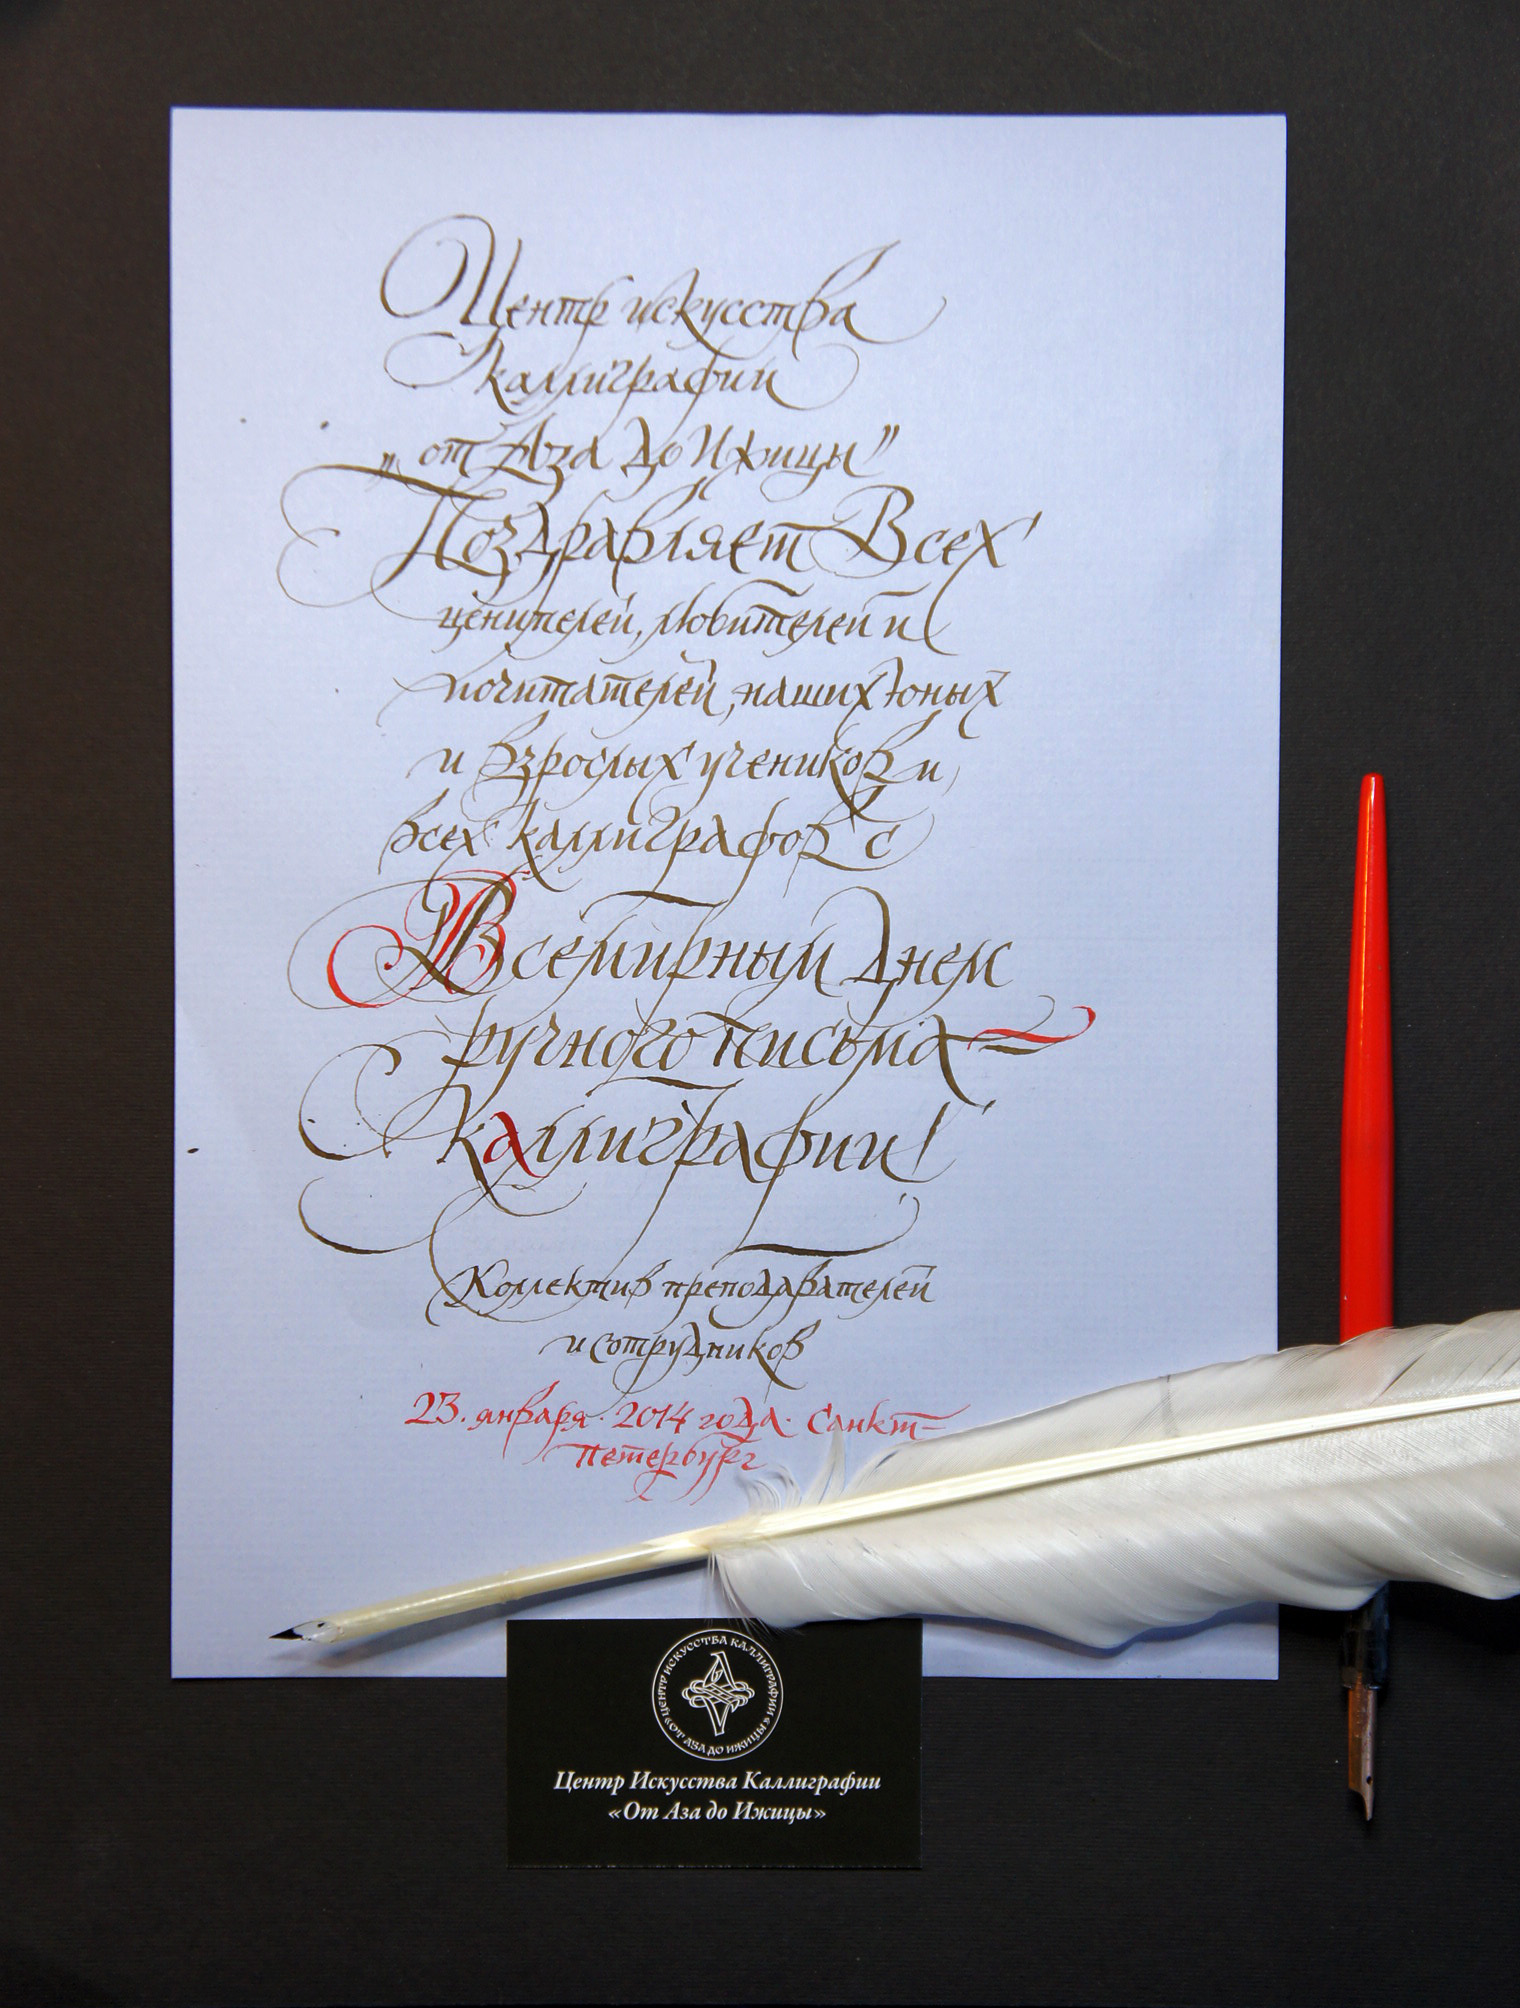 Центр искусства
каллиграфии
„от Аза до Ижицы”
Поздравляет Всех
ценителей, любителей и
почитателей, наших юных
и взрослых учеников и
всех каллиграфов с
Всемирным днем
ручного письма –
каллиграфии!
Коллектив преподавателей
и сотрудников
23. января. 2014 года. Санкт-
Петербург
ЦЕНТР ИСКУССТВА КАЛЛИГРАФИИ «ОТ АЗА ДО ИЖИЦЫ»
Центр Искусства Каллиграфии
«От Аза до Ижицы»